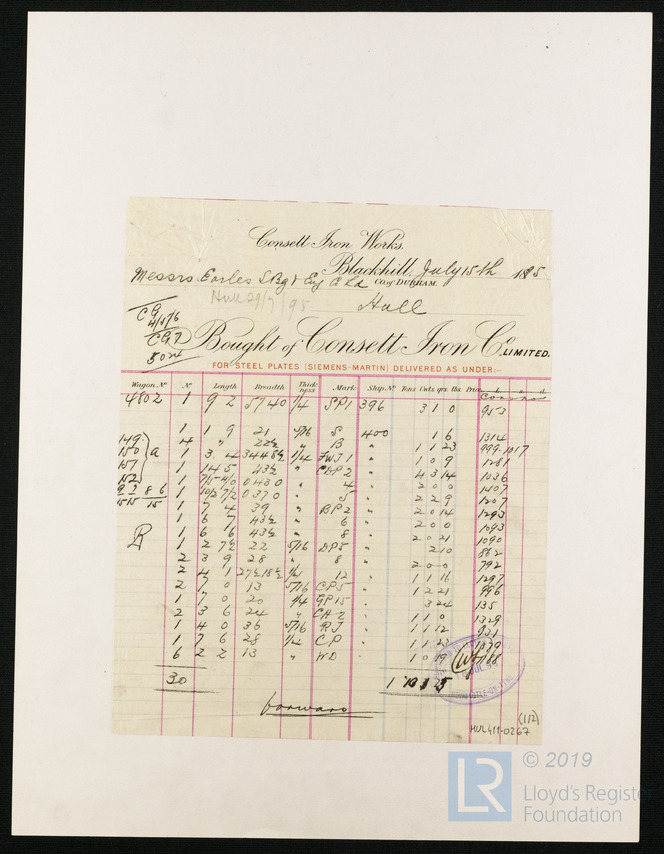 Consett Iron Works.
Blackhill. July 15th 1895
Messrs Earles S Bg & Eng C Ld Co. of DURHAM.
Hull 29/7/95 Hull
50
Bought of Consett Iron Co. LIMITED.
FOR STEEL PLATES (SIEMENS-MARTIN) DELIVERED AS UNDER:—
Wagon No. No. Length Breadth Thickness Mark Ship No. Tons Cwts qrs. lbs. Price £ s. d.
4802 1 9 2 1/4 SP1 396 3 1 0 953
1 1 9 21 5/16 S 400 1 6 1314
149 4 " 22½ " B " 1 1 23 999-1017
150 a 1 3 4 1/4 FWJ 1 " 1 0 9 1281
151 1 14 5 43½ " CDP2 " 4 3 14 1036
152 1 0 4 3 0 " 4 " 2 0 0 1407
1 0 3 7 0 " 5 " 2 2 9 1207
15 15 15 1 7 4 39 " BP2 " 2 0 14 1293
1 6 7 43½ " 6 " 2 0 0 1093
1 6 6 43½ " 8 " 2 0 21 1090
1 2 7½ 22 5/16 DP5 " 2 10 862
2 3 9 28 " 8 " 2 0 0 792
2 4 1 27½ 18½ 1/4 12 " 1 1 16 1297
2 7 0 13 5/16 CP5 " 1 2 21 996
1 7 0 20 1/4 GP15 " 3 24 135
2 3 6 24 " CH2 " 1 1 0 1329
1 4 0 36 5/16 RJ " 1 1 12 921
1 7 6 28 1/4 CP " 1 1 23
6 2 2 13 " WD " 1 0 19
30 1
forward
(1/2)
HUL411-0267
© 2019
LR
Lloyd's Register
Foundation